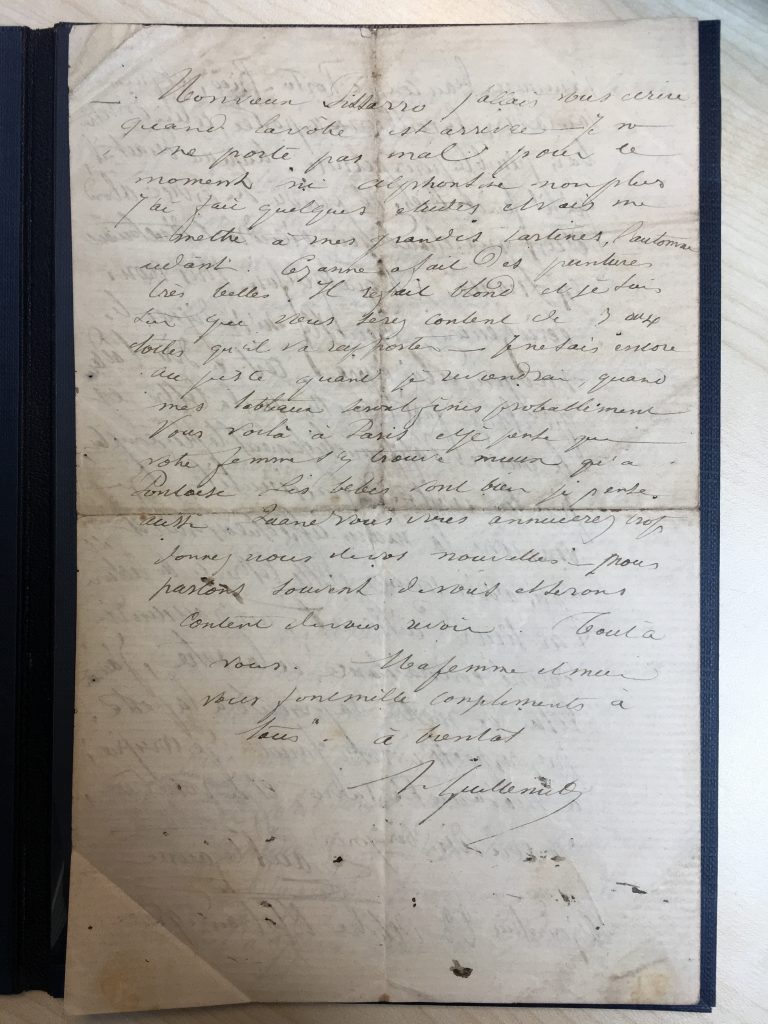 — Monsieur Pissarro j'allais vous ecrire
quand la votre est arrivée — Je
me porte pas mal pour le
moment ni alphonsine non plus
J'ai fait quelques etudes et vais me
mettre à mes grandes tartines, l'automne
aidant. Cezanne a fait des peintures
très belles. Il refait blond et je suis
sur que vous serez content de 3 aux
toiles qu'il va rapporter — je ne sais encore
au juste quand je reviendrai, quand
mes tableaux seront finis probablement
Vous voilà à Paris et je pense que
votre femme s'y trouve mieux qu'a
Pontoise Les bebes vont bien je pense.
aussi Quand vous vous annuierez trop
donnez nous de vos nouvelles — nous
parlons souvent de vous et serons
content de vous revoir. Tout à
vous. Ma femme et
vous font mille compliments à
tous. à bientôt
Guillemet